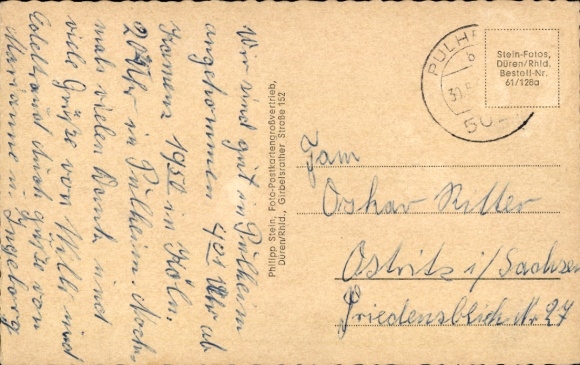 Wir sind gut in Pulheim
angekommen 4 01 Uhr ab
Kamenz 1950 in Köln,
20 Uhr in Pulheim. Noch-
mals vielen Dank und
viele Grüße von Willi und
Edeltraud auch grüße von
Marianne u. Ingeborg
Philipp Stein, Foto-Postkartengroßvertrieb,
Düren/Rhld., Girbelsrather Straße 152
PULHE
b
30.5
502
Stein-Fotos,
Düren/Rhld.
Bestell-Nr.
61/128a
Fam
Oskar Ritter
Ostritz i/Sachsen
Friedensblick Nr 27